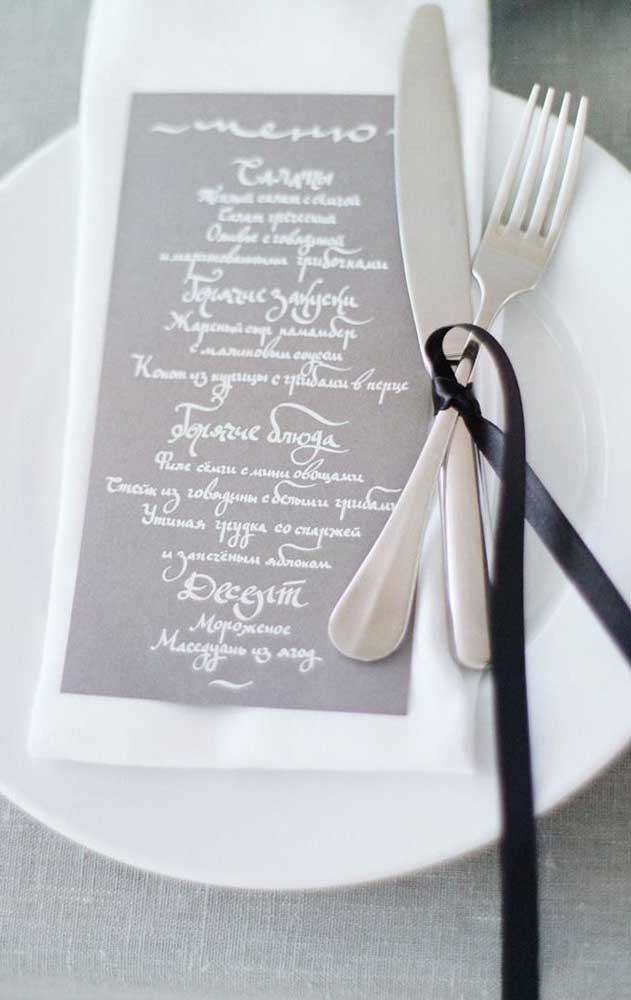 ~меню
Салаты
Тёплый салат с семгой
Салат греческий
Оливье с говядиной
и маринованными грибочками
Горячие закуски
Жареный сыр камамбер
с малиновым соусом
Кокот из курицы с грибами в перце
Горячие блюда
Филе сёмги с мини овощами
Стейк из говядины с белыми грибами
Утиная грудка со спаржей
и запечёным яблоком
Десерт
Мороженое
Маседуань из ягод
~